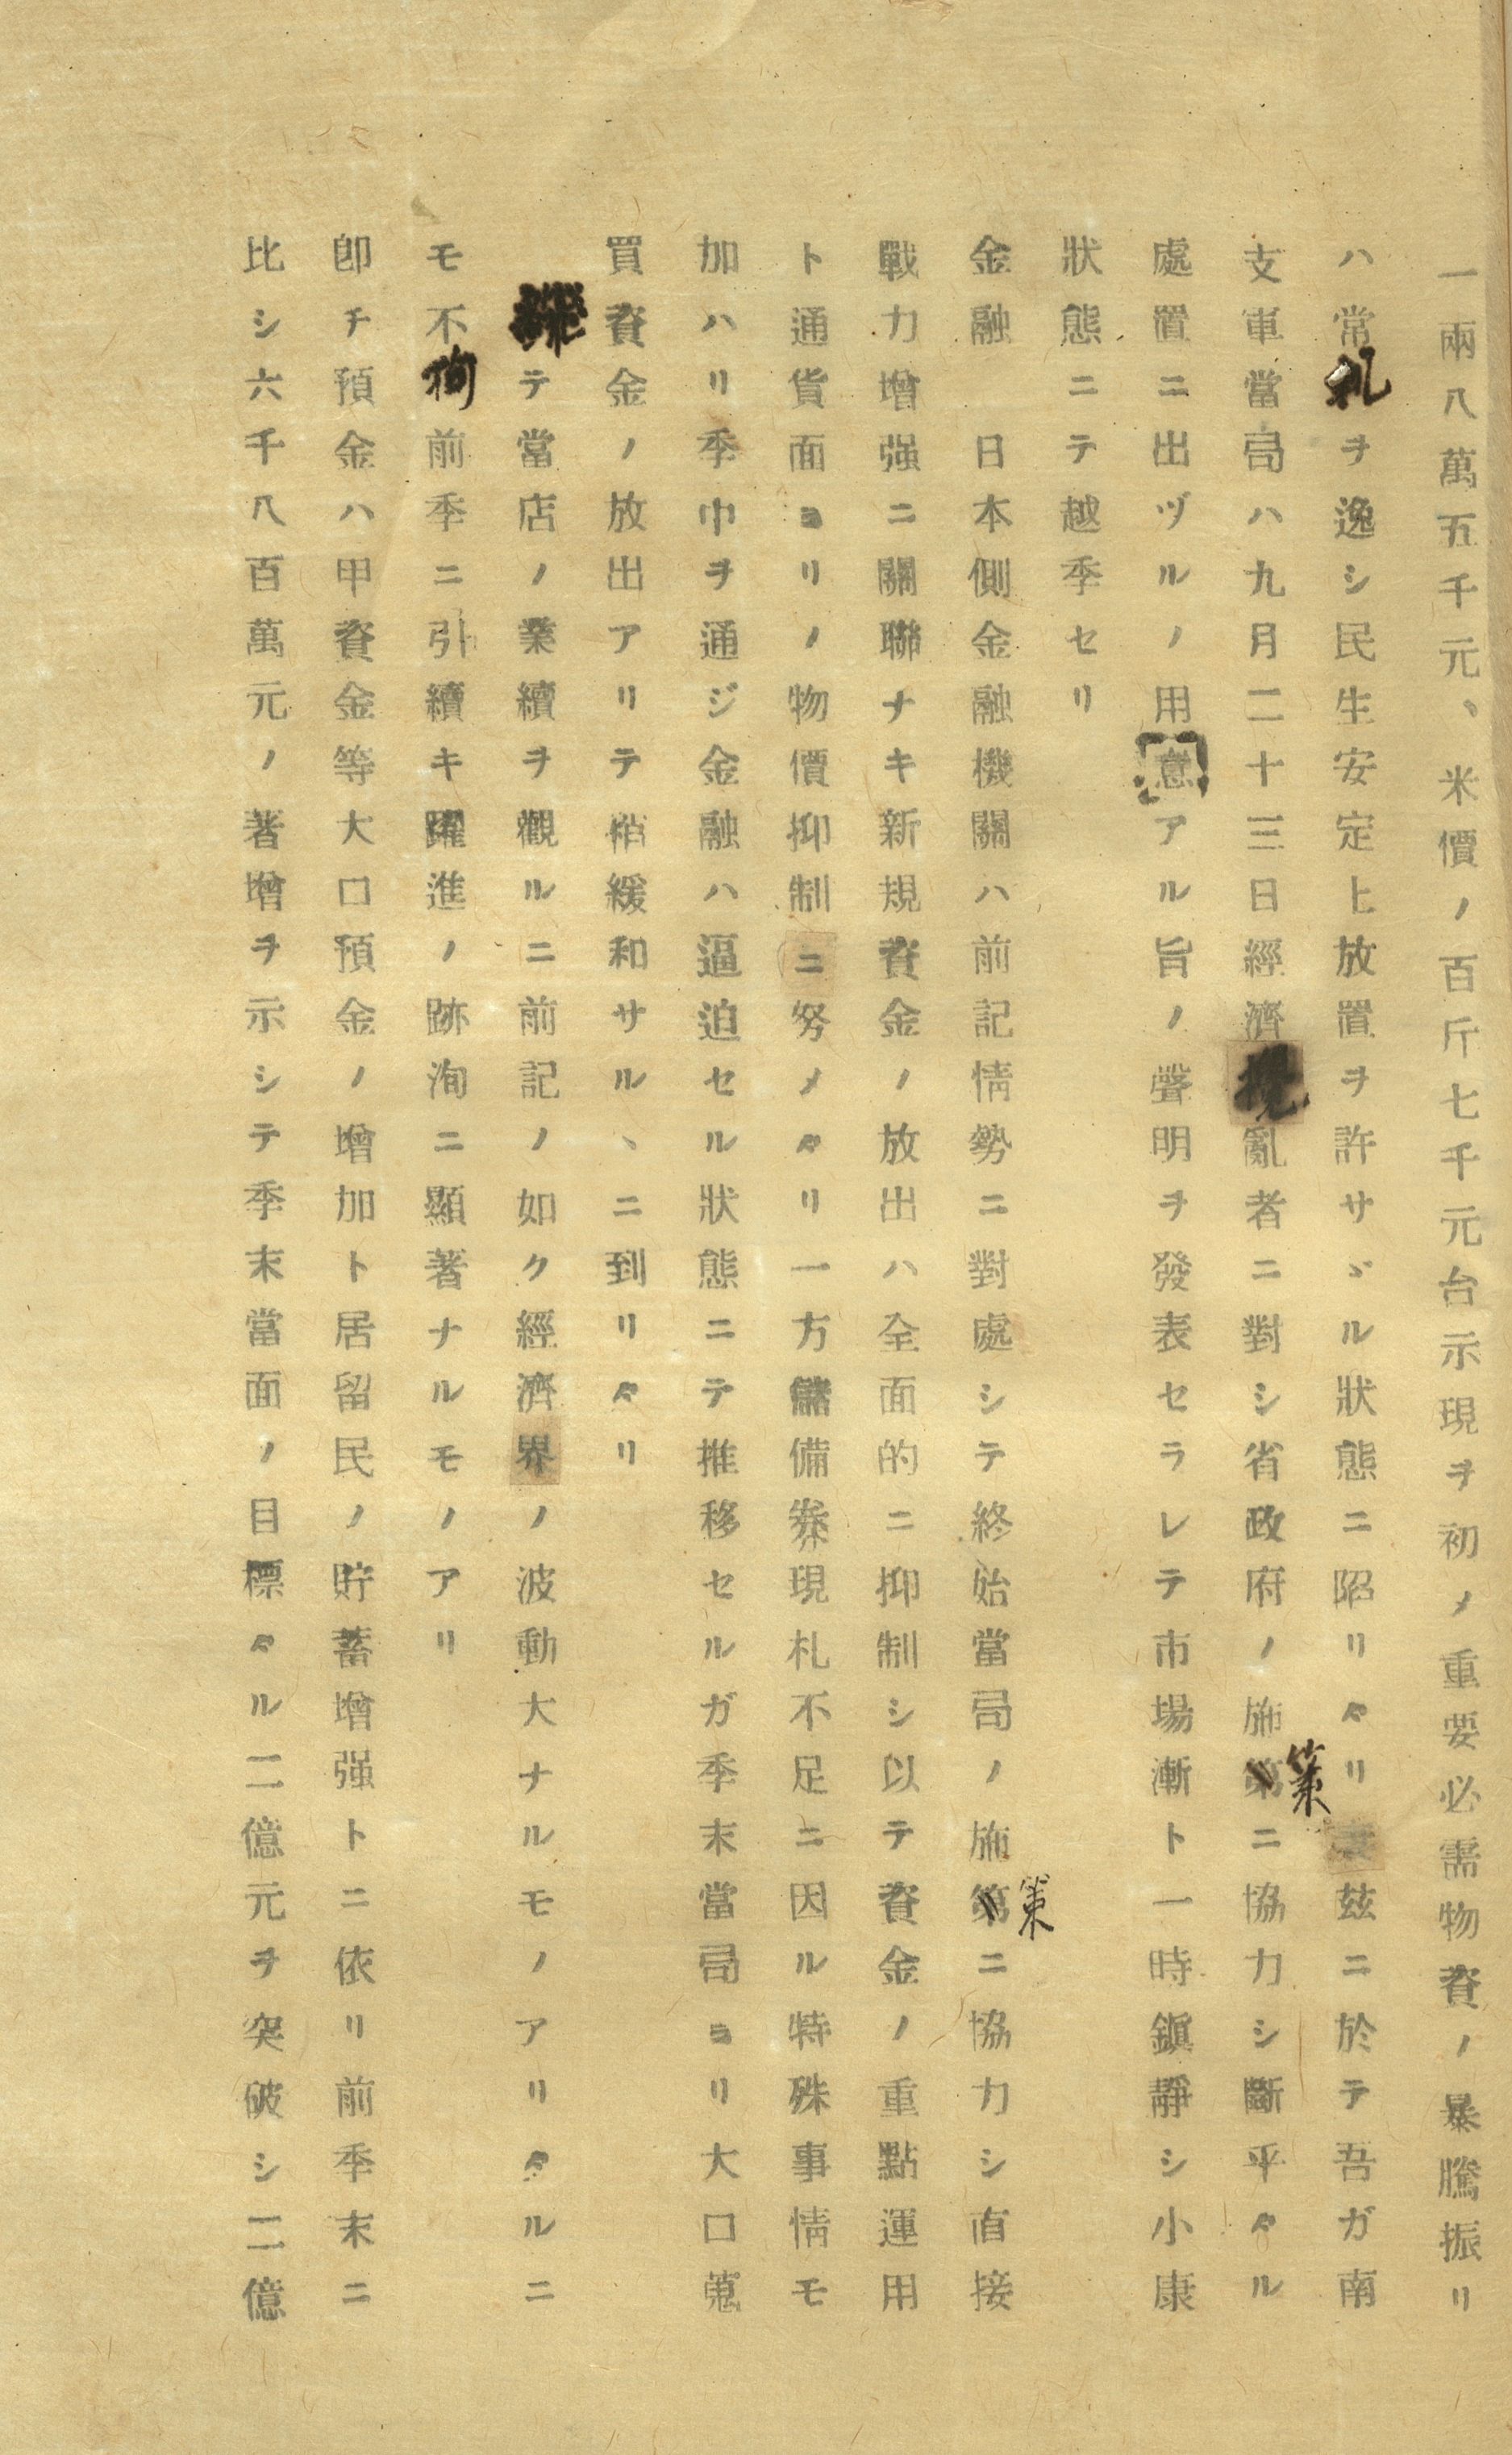 一兩八萬五千元、米價ノ百斤七千元台示現ヲ初メ重要必需物資ノ暴騰振リ
ハ常軌ヲ逸シ民生安定上放置ヲ許サヾル狀態ニ陷リタリ玆ニ於テ吾ガ南
支軍當局ハ九月二十三日經濟攪亂者ニ對シ省政府ノ施第策ニ協力シ斷乎タル
處置ニ出ヅルノ用意アル旨ノ聲明ヲ發表セラレテ市場漸ト一時鎭靜シ小康
狀態ニテ越季セリ
金融 日本側金融機關ハ前記情勢ニ對處シテ終始當局ノ施第策ニ協力シ直接
戰力增强ニ關聯ナキ新規資金ノ放出ハ全面的ニ抑制シ以テ資金ノ重點運用
ト通貨面ヨリノ物價抑制ニ努メタリ一方儲備券現札不足ニ因ル特殊事情モ
加ハリ季中ヲ通ジ金融ハ逼迫セル狀態ニテ推移セルガ季末當局ヨリ大口蒐
買資金ノ放出アリテ稍緩和サルヽニ到リタリ
テ當店ノ業績ヲ觀ルニ前記ノ如ク經濟界ノ波動大ナルモノアリタルニ
モ不拘前季ニ引續キ躍進ノ跡洵ニ顯著ナルモノアリ
卽チ預金ハ甲資金等大口預金ノ增加ト居留民ノ貯蓄增强トニ依リ前季末ニ
比シ六千八百萬元ノ著增ヲ示シテ季末當面ノ目標タル二億元ヲ突破シ二億